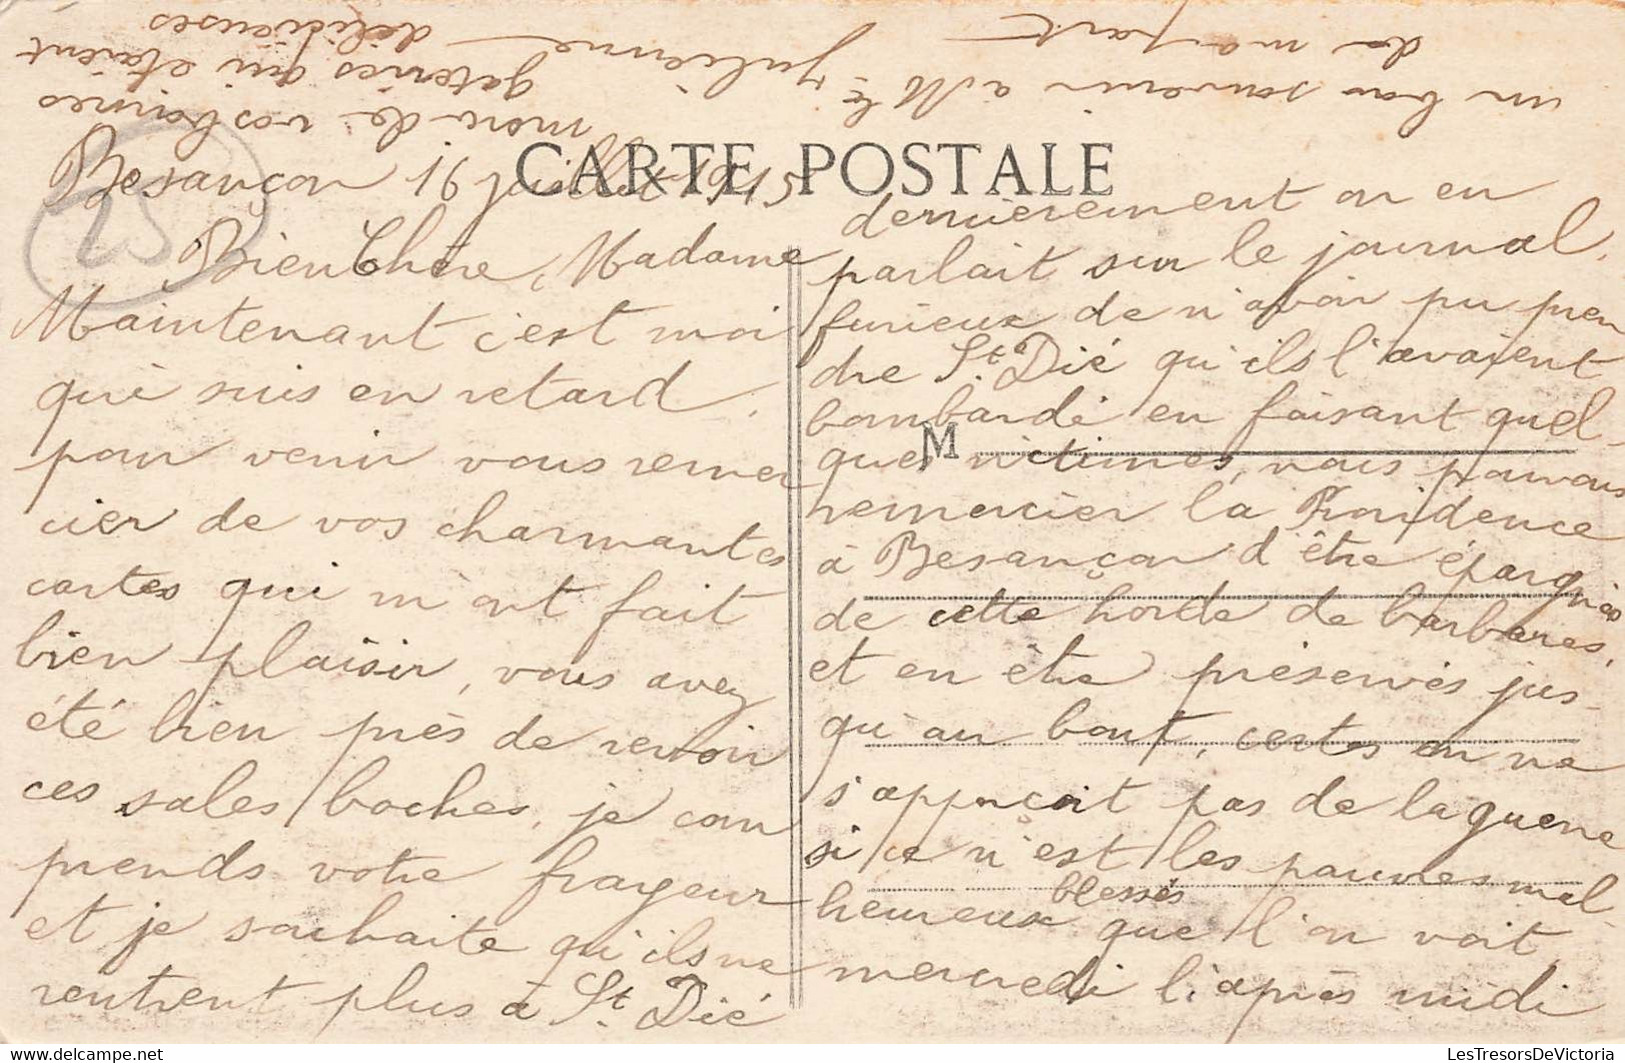 CARTE POSTALE
Besançon 16 juillet 1915
Bien Chère Madame
Maintenant c'est moi
qui suis en retard
pour venir vous remer
cier de vos charmantes
cartes qui m'ont fait
bien plaisir, vous avez
été bien près de revoir
ces sales boches, je com
prends votre frayeur
et je souhaite qu'ils ne
rentrent plus à St Dié
dernièrement on en
parlait sur le journal,
furieux de n'avoir pu pren
dre St Dié qu'ils l'avaient
bombardé en faisant quel-
ques victimes, nous pouvons
M
remercier la Providence
à Besançon d'être épargnés
de cette horde de barbares,
et en être préservés jus-
qu'au bout, certes on ne
s'apperçoit pas de la guerre
si ce n'est les pauvres mal-
heureux blessés que l'on voit,
mercredi l'après midi
more de vos bonnes
gateries qui étaient
délicieuses
un bon souvenir à Mle Julienne
de ma part
25
LesTresorsDeVictoria